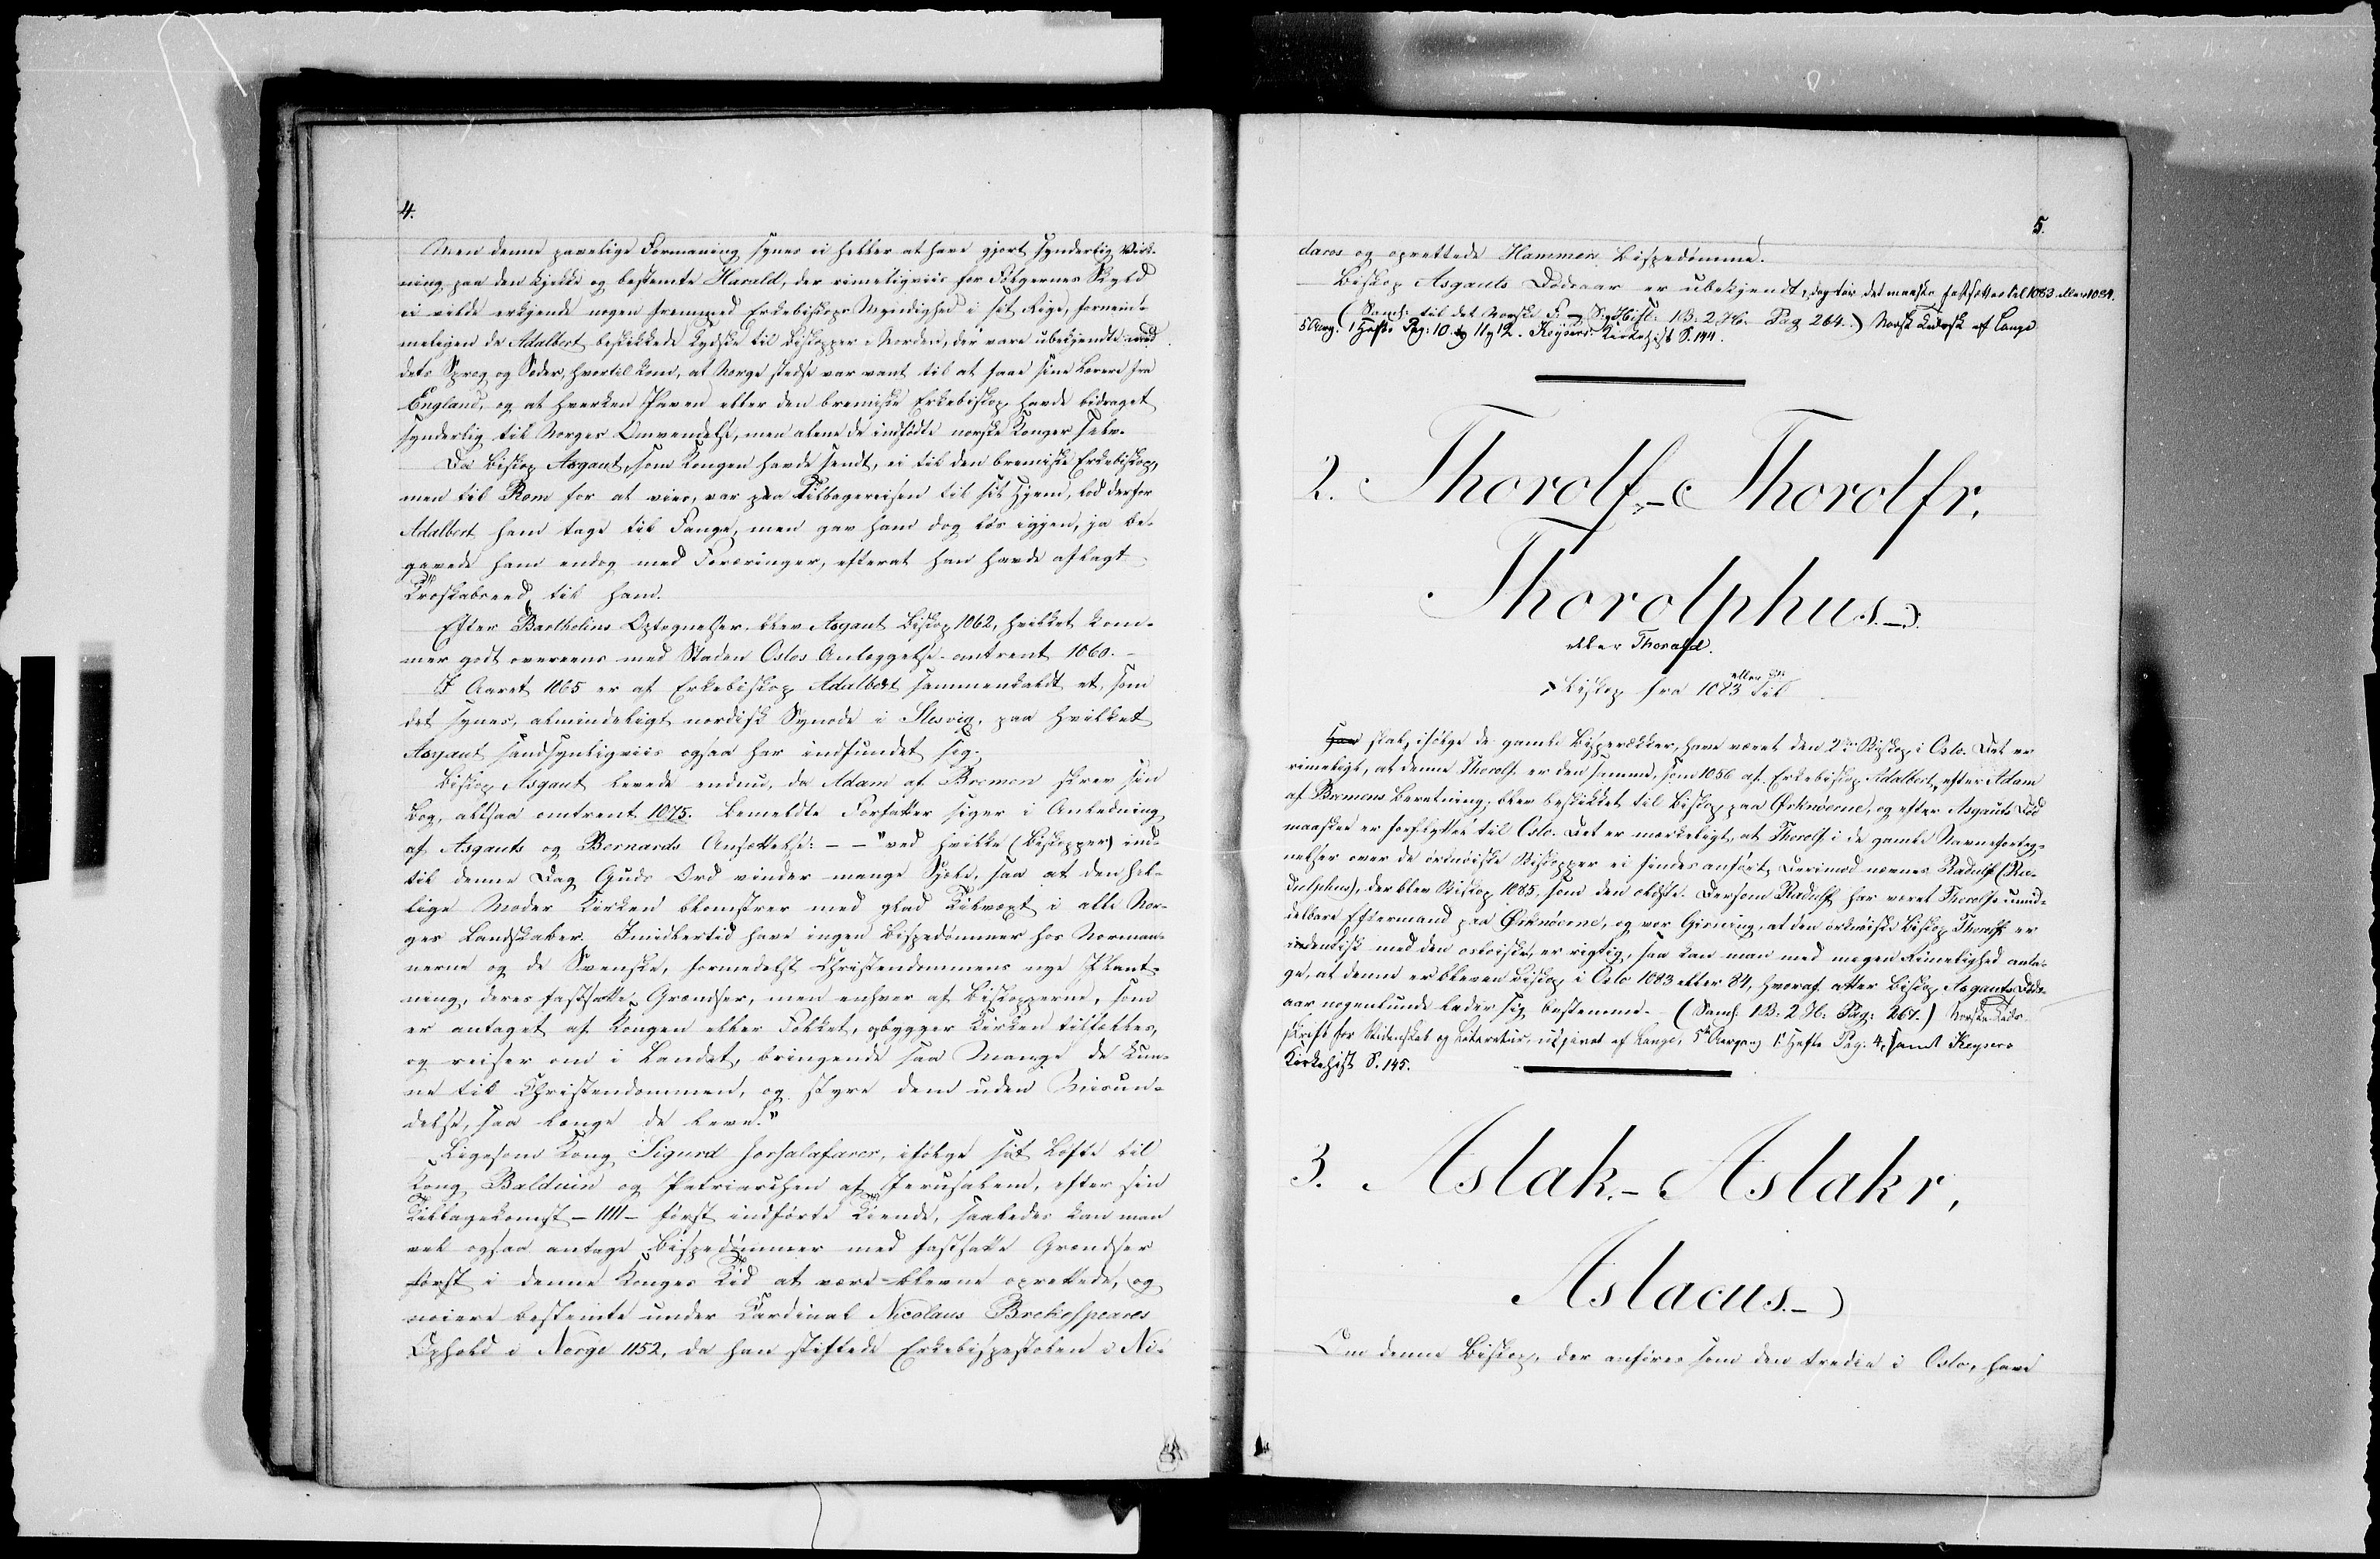 4.
Men denne pavelige Formaning synes ei heller at have gjort synderlig Virk-
ning paa den kjække og bestemte Harald, der rimeligviis for Følgernes Skyld
ei vilde erkjende nogen fremmed Erkebiskops Myndighed i sit Rige, fornem-
meligen da Adalbert beskikkede Tydske til Biskopper i Norden, der vare ubekjendte med
dets Sprog og Sæder, hvortil kom, at Norge stedse var vant til at faae sine Lærere fra
England, og at hverken Paven eller den bremiske Erkebiskop havde bidraget
synderlig til Norges Omvendelse, men alene de indfødte norske Konger selv.
Da Biskop Asgaut, som Kongen havde sendt, ei til den bremiske Erkebiskop,
men til Rom for at vies, var paa Tilbagereisen til sit Hjem, lod derfor
Adalbert ham tage til Fange, men gav ham dog løs igjen, ja be-
gavede ham endog med Foræringer, efterat han havde aflagt
Troskabseed til ham.
Efter Bartholins Optegnelser blev Asgaut Biskop 1062, hvilket kom-
mer godt overeens med Staden Oslos Anlæggelse omtrent 1060.-
I Aaret 1065 er af Erkebiskop Adalbert sammenkaldt et, som
det synes, almindeligt nordisk Synode i Slesvig, paa hvilket
Asgaut sandsynligviis ogsaa har indfundet sig.
Biskop Asgaut levede endnu, da Adam af Bremen skrev sin
Bog, altsaa omtrent 1075. Bemeldte Forfatter siger i Anledning
af Asgauts og Bernards Ansættelse: - - "ved hvilke (Biskopper) ind-
til denne Dag Guds Ord vinder mange Sjæle, saa at den hel-
lige Moder Kirken blomstrer med glad Tilvæxt i alle Nor-
ges Landskaber. Imidlertid have ingen Bispedømmer hos Norman-
nerne og de Svenske, formedelst Christendommens nye Plant-
ning, deres fastsatte Grændser, men enhver af Biskopperne, som
er antaget af Kongen eller Folket, opbygger Kirken tilfælles,
og reiser om i Landet, bringende saa Mange de kun-
ne til Christendommen, og styre dem uden Misun-
delse, saa længe de leve."
Ligesom Kong Sigurd Jorsalafarer, ifølge sit Løfte til
Kong Balduin og Patriarchen af Jerusalem, efter sin
Tilbagekomst - 1111 - først indførte Tiende, saaledes kan man
vel ogsaa antage Bispedømmer med fastsatte Grændser
først i denne Konges Tid at være blevne oprettede, og
nøiere bestemte under Cardinal Nicolaus Brekespeares
Ophold i Norge 1152, da han stiftede Erkebispestolen i Ni-
5.
daros og oprettede Hammers Bispedømme.
Biskop Asgauts Dødsaar er ubekjendt, dog tør det maaske fastsættes til 1083 eller 1084.
(Saml: til det Norske F: - S: og Hist: 1B: 2 H. Pag 264.) Norsk Tidssk af Lange
5 Aarg: 1 Hefte Pag: 10 og 11 og 12. Keysers Kirkehist S. 144.
2. Thorolf.- Thorolfr,
Thorolphus.-
eller Thorald.
Biskop fra 1083 eller 84 til
Han skal, ifølge de gamle Bisperækker, have været den 2den Biskop i Oslo. Det er
rimeligt, at denne Thorolf er den samme, som 1056 af Erkebiskop Adalbert, efter Adam
af Bremens Beretning, blev beskikket til Biskop paa Ørknøerne, og efter Asgauts Død
maaskee er forflyttet til Oslo. Det er mærkeligt, at Thorolf i de gamle Navnefortegn-
nelser over de ørknøiske Biskopper ei findes anført, derimod nævnes Radulf (Ra-
dulphus), der blev Biskop 1085, som den ældste. Dersom Radulf har været Thorolfs umid-
delbare Eftermand paa Ørknøerne, og vor Gisning, at den ørknøiske Biskop Thorolf er
indentisk med den osloiske, er rigtig, saa kan man med megen Rimelighed anta-
ge, at denne er bleven Biskop i Oslo 1083 eller 84, hvoraf atter Biskop Asgauts Døds-
aar nogenlunde lader sig bestemme. (Saml: 1B: 2 H: Pag: 267.) Norsk Tids-
skrift for Videnskab og Literatur, udgivet af Lange, 5te Aargang 1: Hefte Pag: 4, samt Keysers
Kirkehist S. 145.
3. Aslak.- Aslakr,
Aslacus.-
Om denne Biskop, der anføres som den tredie i Oslo, have